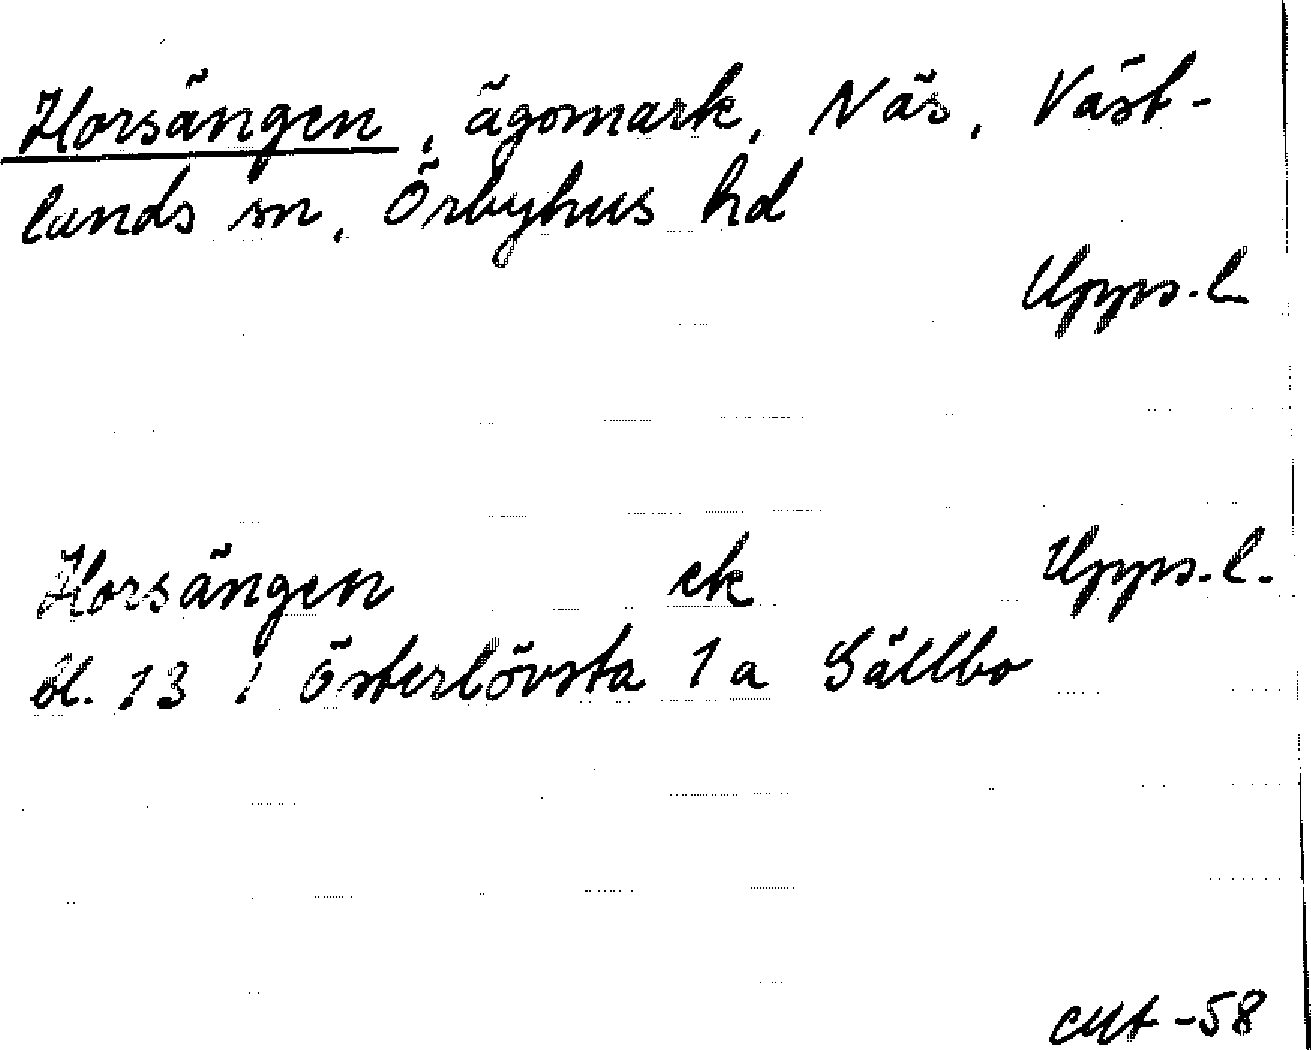 Horsängen, ägomark, Näs, Väst-
lands sn, Örbyhus hd
Upps. l
Horsängen ek Upps. l.
bl. 13 i Österlövsta 1a Sällbo
-58